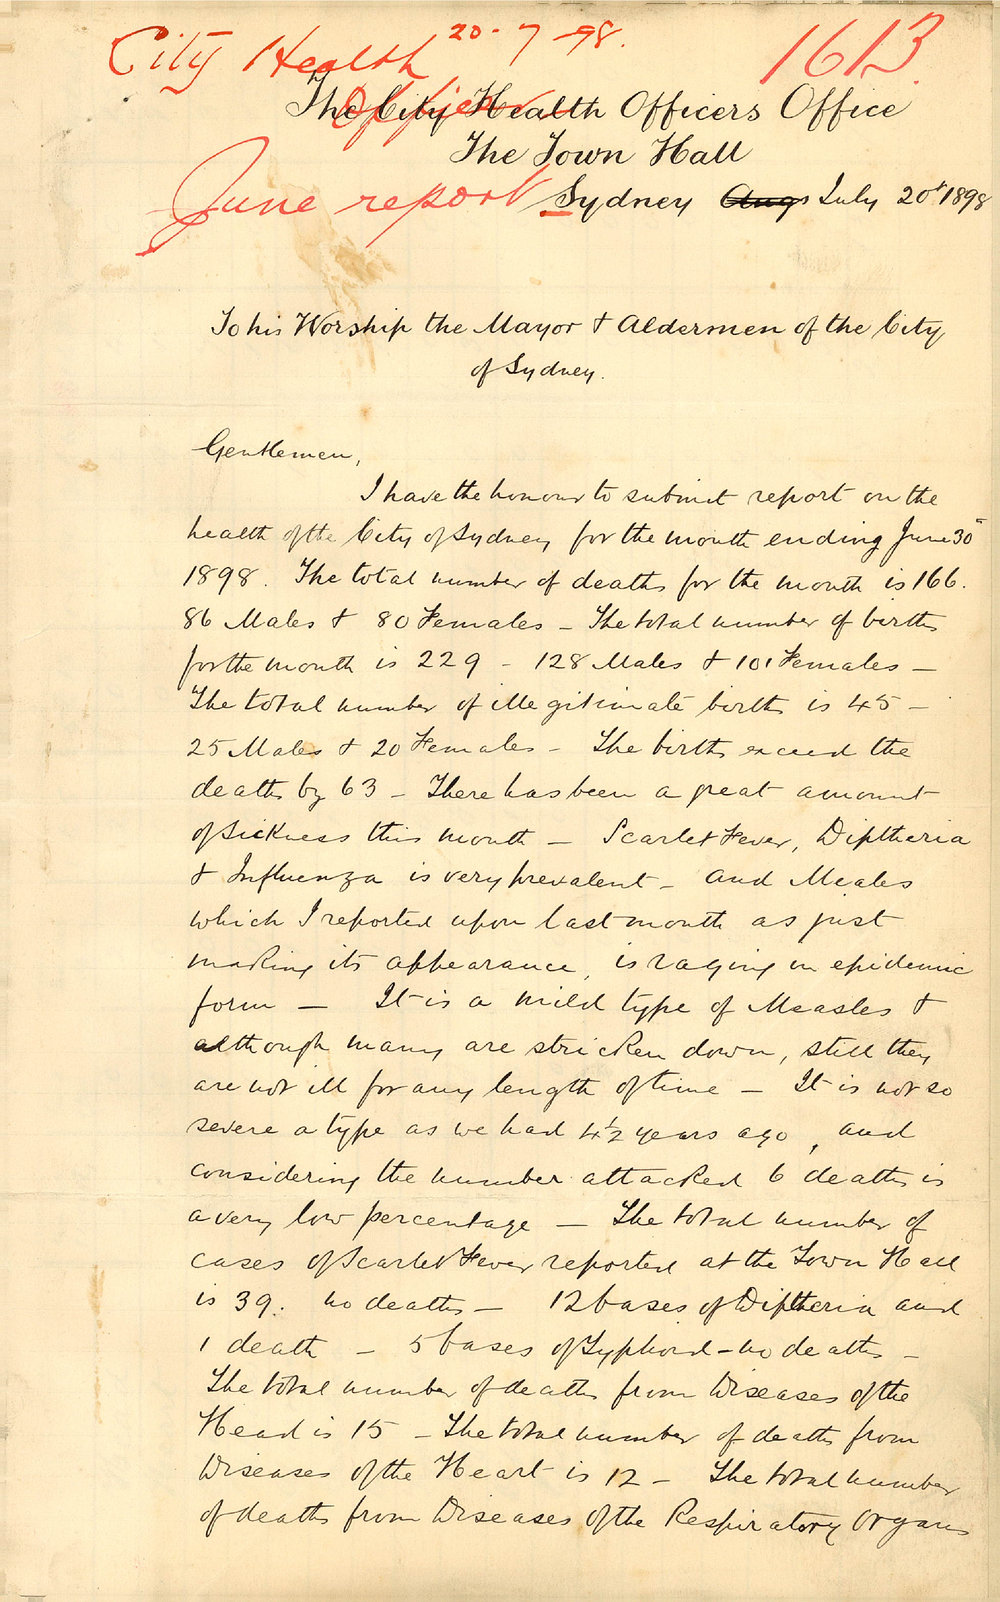 City Health 20-7-98. 1613
Officer
The City Health Officers Office
The Town Hall
June report Sydney Augs July 20t 1898
To his Worship the Mayor & Aldermen of the City
of Sydney.
Gentlemen,
I have the honour to submit report on the
health of the City of Sydney for the month ending June 30th
1898. The total number of deaths for the month is 166.
86 Males & 80 Females – The total number of births
for the month is 229 – 128 Males & 101 Females –
The total number of illegitimate births is 45 –
25 Males & 20 Females – The births exceed the
deaths by 63 – There has been a great amount
of sickness this month – Scarlet Fever, Diptheria
& Influenza is very prevalent – and Meales
which I reported upon last month as just
making its appearance, is raging in epidemic
form – It is a mild type of Measles &
although many are stricken down, still they
are not ill for any length of time – It is not so
severe a type as we had 4½ years ago, and
considering the number attacked 6 deaths is
a very low percentage – The total number of
cases of Scarlet Fever reported at the Town Hall
is 39. no deaths – 12 Cases of Diptheria and
1 death – 5 Cases of Typhoid – no deaths –
The total number of deaths from Diseases of the
Head is 15 – The total number of deaths from
Diseases of the Heart is 12 – The total number
of deaths from Diseases of the Respiratory Organs